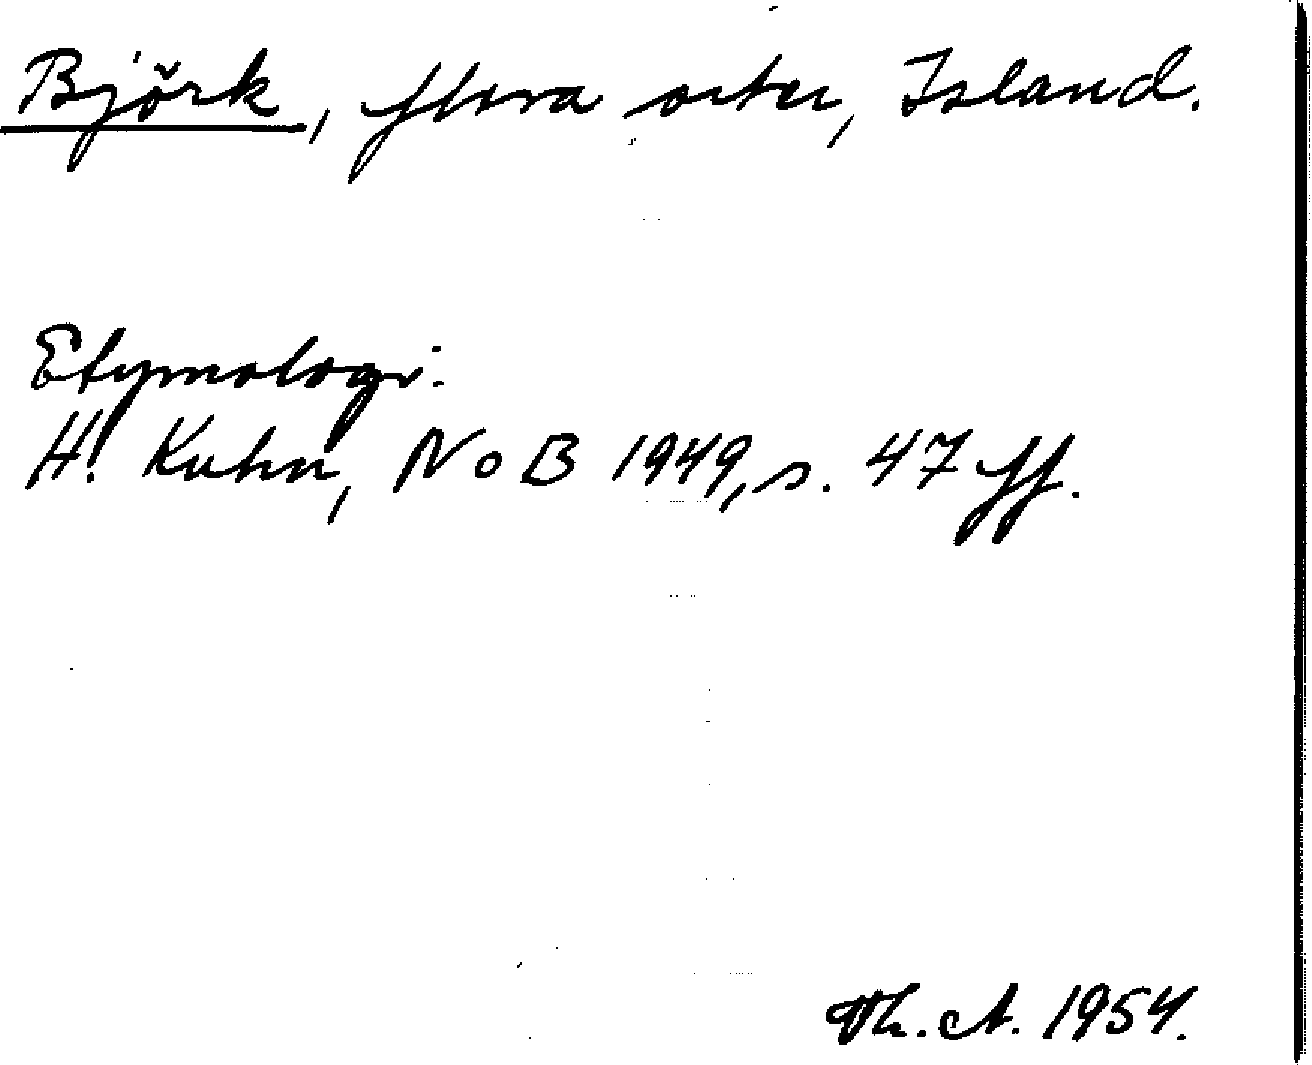 Björk, flera orter, Island.
Etymologi:
H. Kuhn, NoB 1949, s. 47 ff.
Th. A. 1954.